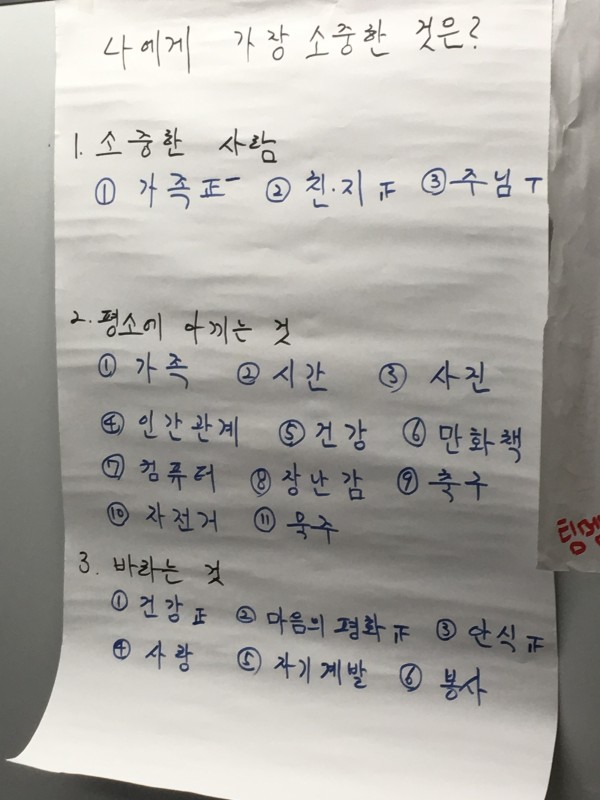 나에게 가장 소중한 것은?
1. 소중한 사람
① 가족 正一 ② 친·지 正 ③ 주님 T
2. 평소에 아끼는 것
① 가족 ② 시간 ③ 사진
④ 인간관계 ⑤ 건강 ⑥ 만화책
⑦ 컴퓨터 ⑧ 장난감 ⑨ 축구
⑩ 자전거 ⑪ 묵주
3. 바라는 것
① 건강 正 ② 마음의 평화 正 ③ 안식 正
④ 사랑 ⑤ 자기계발 ⑥ 봉사